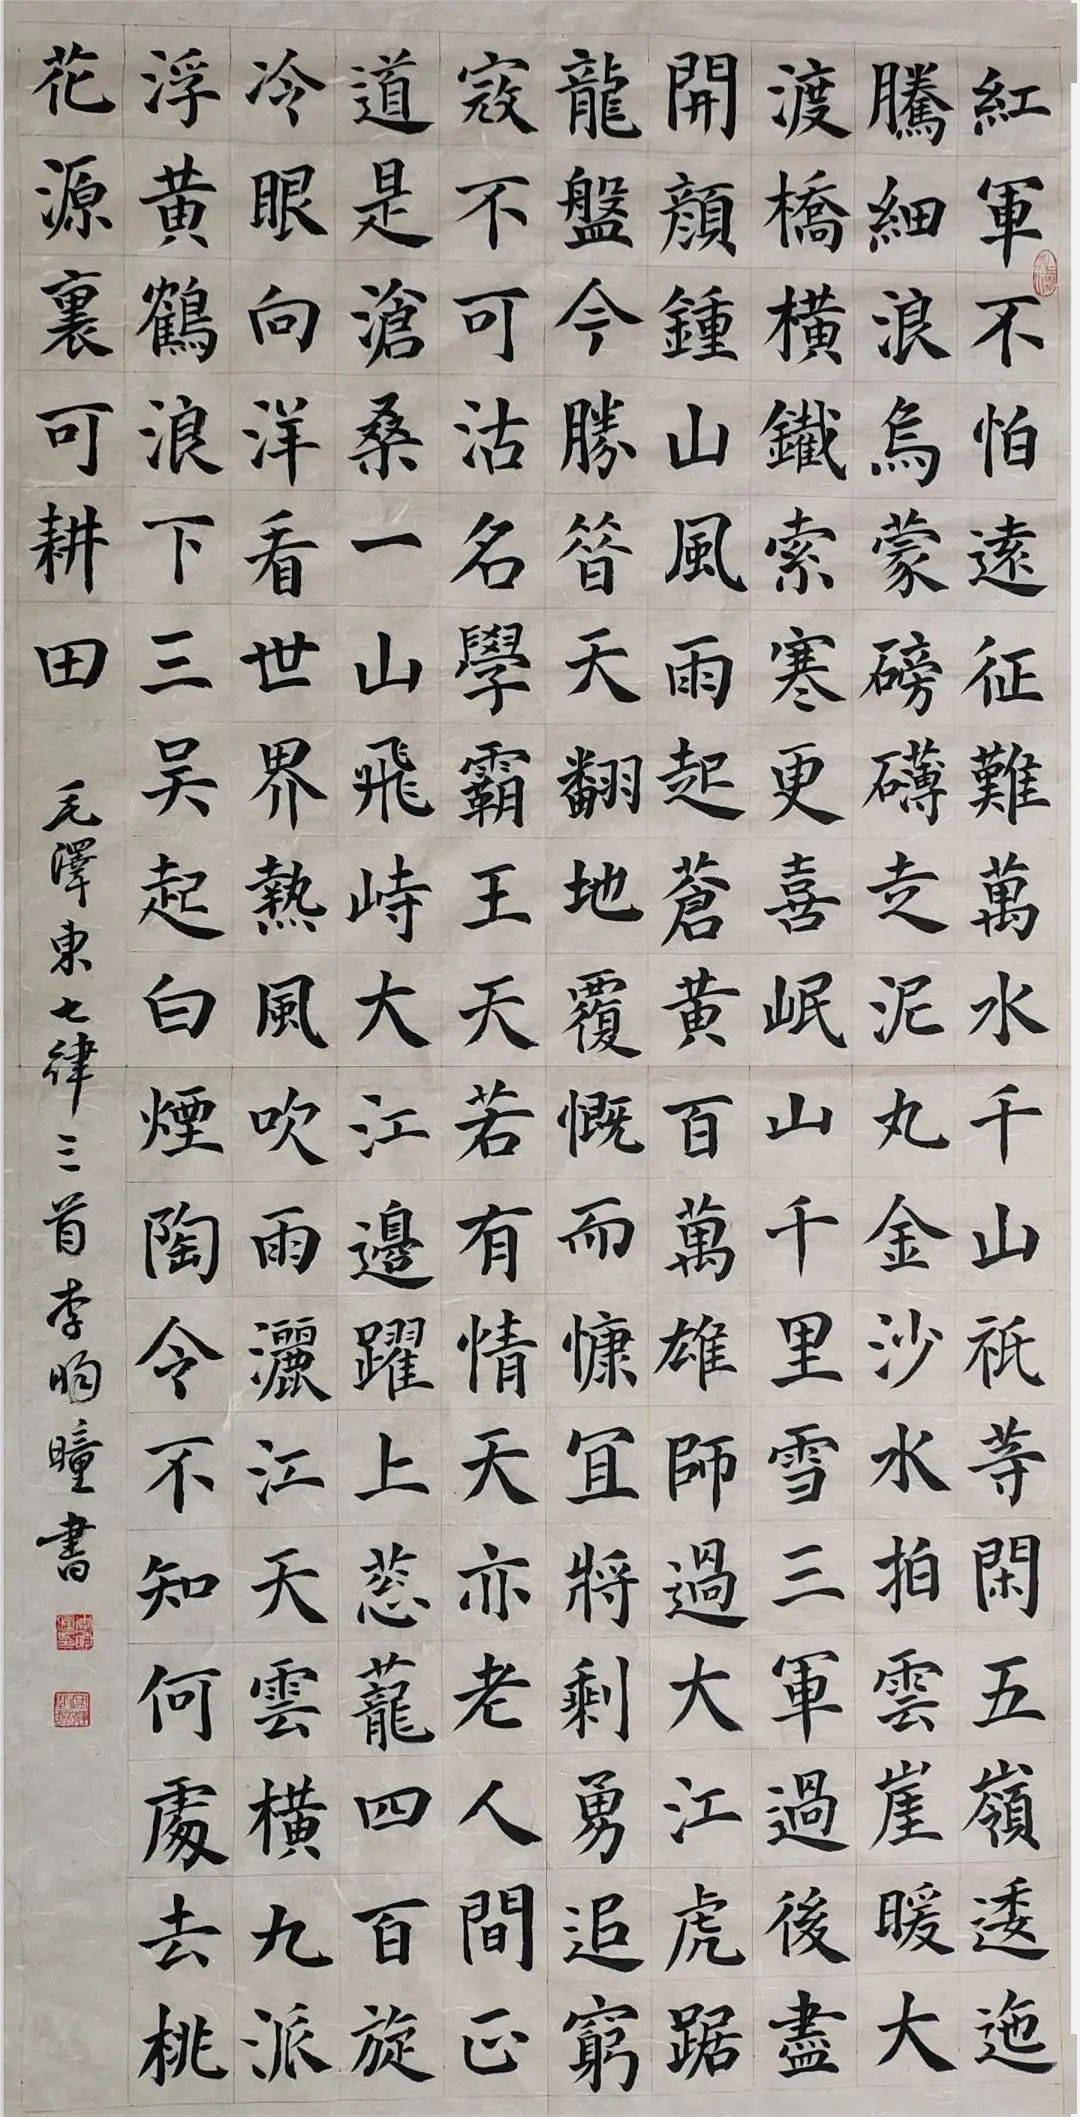 紅軍不怕遠征難萬水千山祇等閑五嶺逶迤
騰細浪烏蒙磅礴走泥丸金沙水拍雲崖暖大
渡橋橫鐵索寒更喜岷山千里雪三軍過後盡
開顏鍾山風雨起蒼黃百萬雄師過大江虎踞
龍盤今勝昝天翻地覆慨而慷宜將剩勇追窮
寇不可沽名學霸王天若有情天亦老人間正
道是滄桑一山飛峙大江邊躍上蔥蘢四百旋
冷眼向洋看世界熱風吹雨灑江天雲橫九派
浮黃鶴浪下三吳起白煙陶令不知何處去桃
花源裏可耕田
毛澤東七律三首李昫曈書